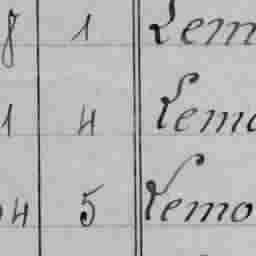 8 1 Lem
1 4 Lemo
4 5 Lemo